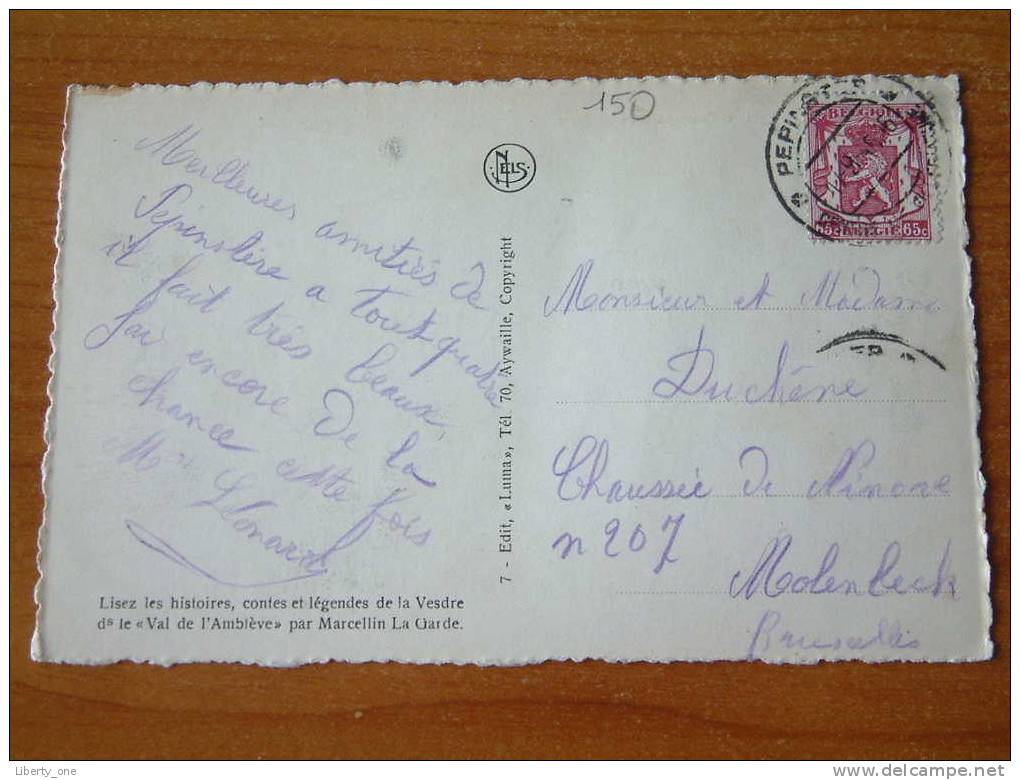 150
Meilleures amitiés de
Pepinstère a tout quatre
il fait très beaux,
j'ai encore de la
chance cette fois
Lisez les histoires, contes et légendes de la Vesdre
ds le «Val de l'Amblève» par Marcellin La Garde.
NELS
7 - Edit, «Luma», Tél. 70, Aywaille, Copyright
PEPINSTER
BELGIQUE
BELGIE 65c
Monsieur et Madame
Duchêne
Chaussée de Ninove
n 207
Molenbeek
Bruxelles
Liberty_one
www.delcampe.net